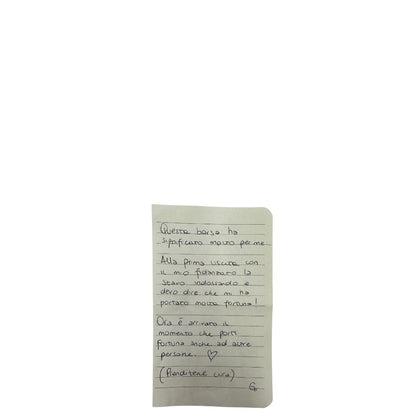 Questa borsa ha
significato molto per me
Alla prima uscita con
il mio fidanzato la
stavo indossando e
devo dire che mi ha
portato molta fortuna!
Ora è arrivato il
momento che porti
fortuna anche ad altre
persone. ♡
(Prenditene cura)
G